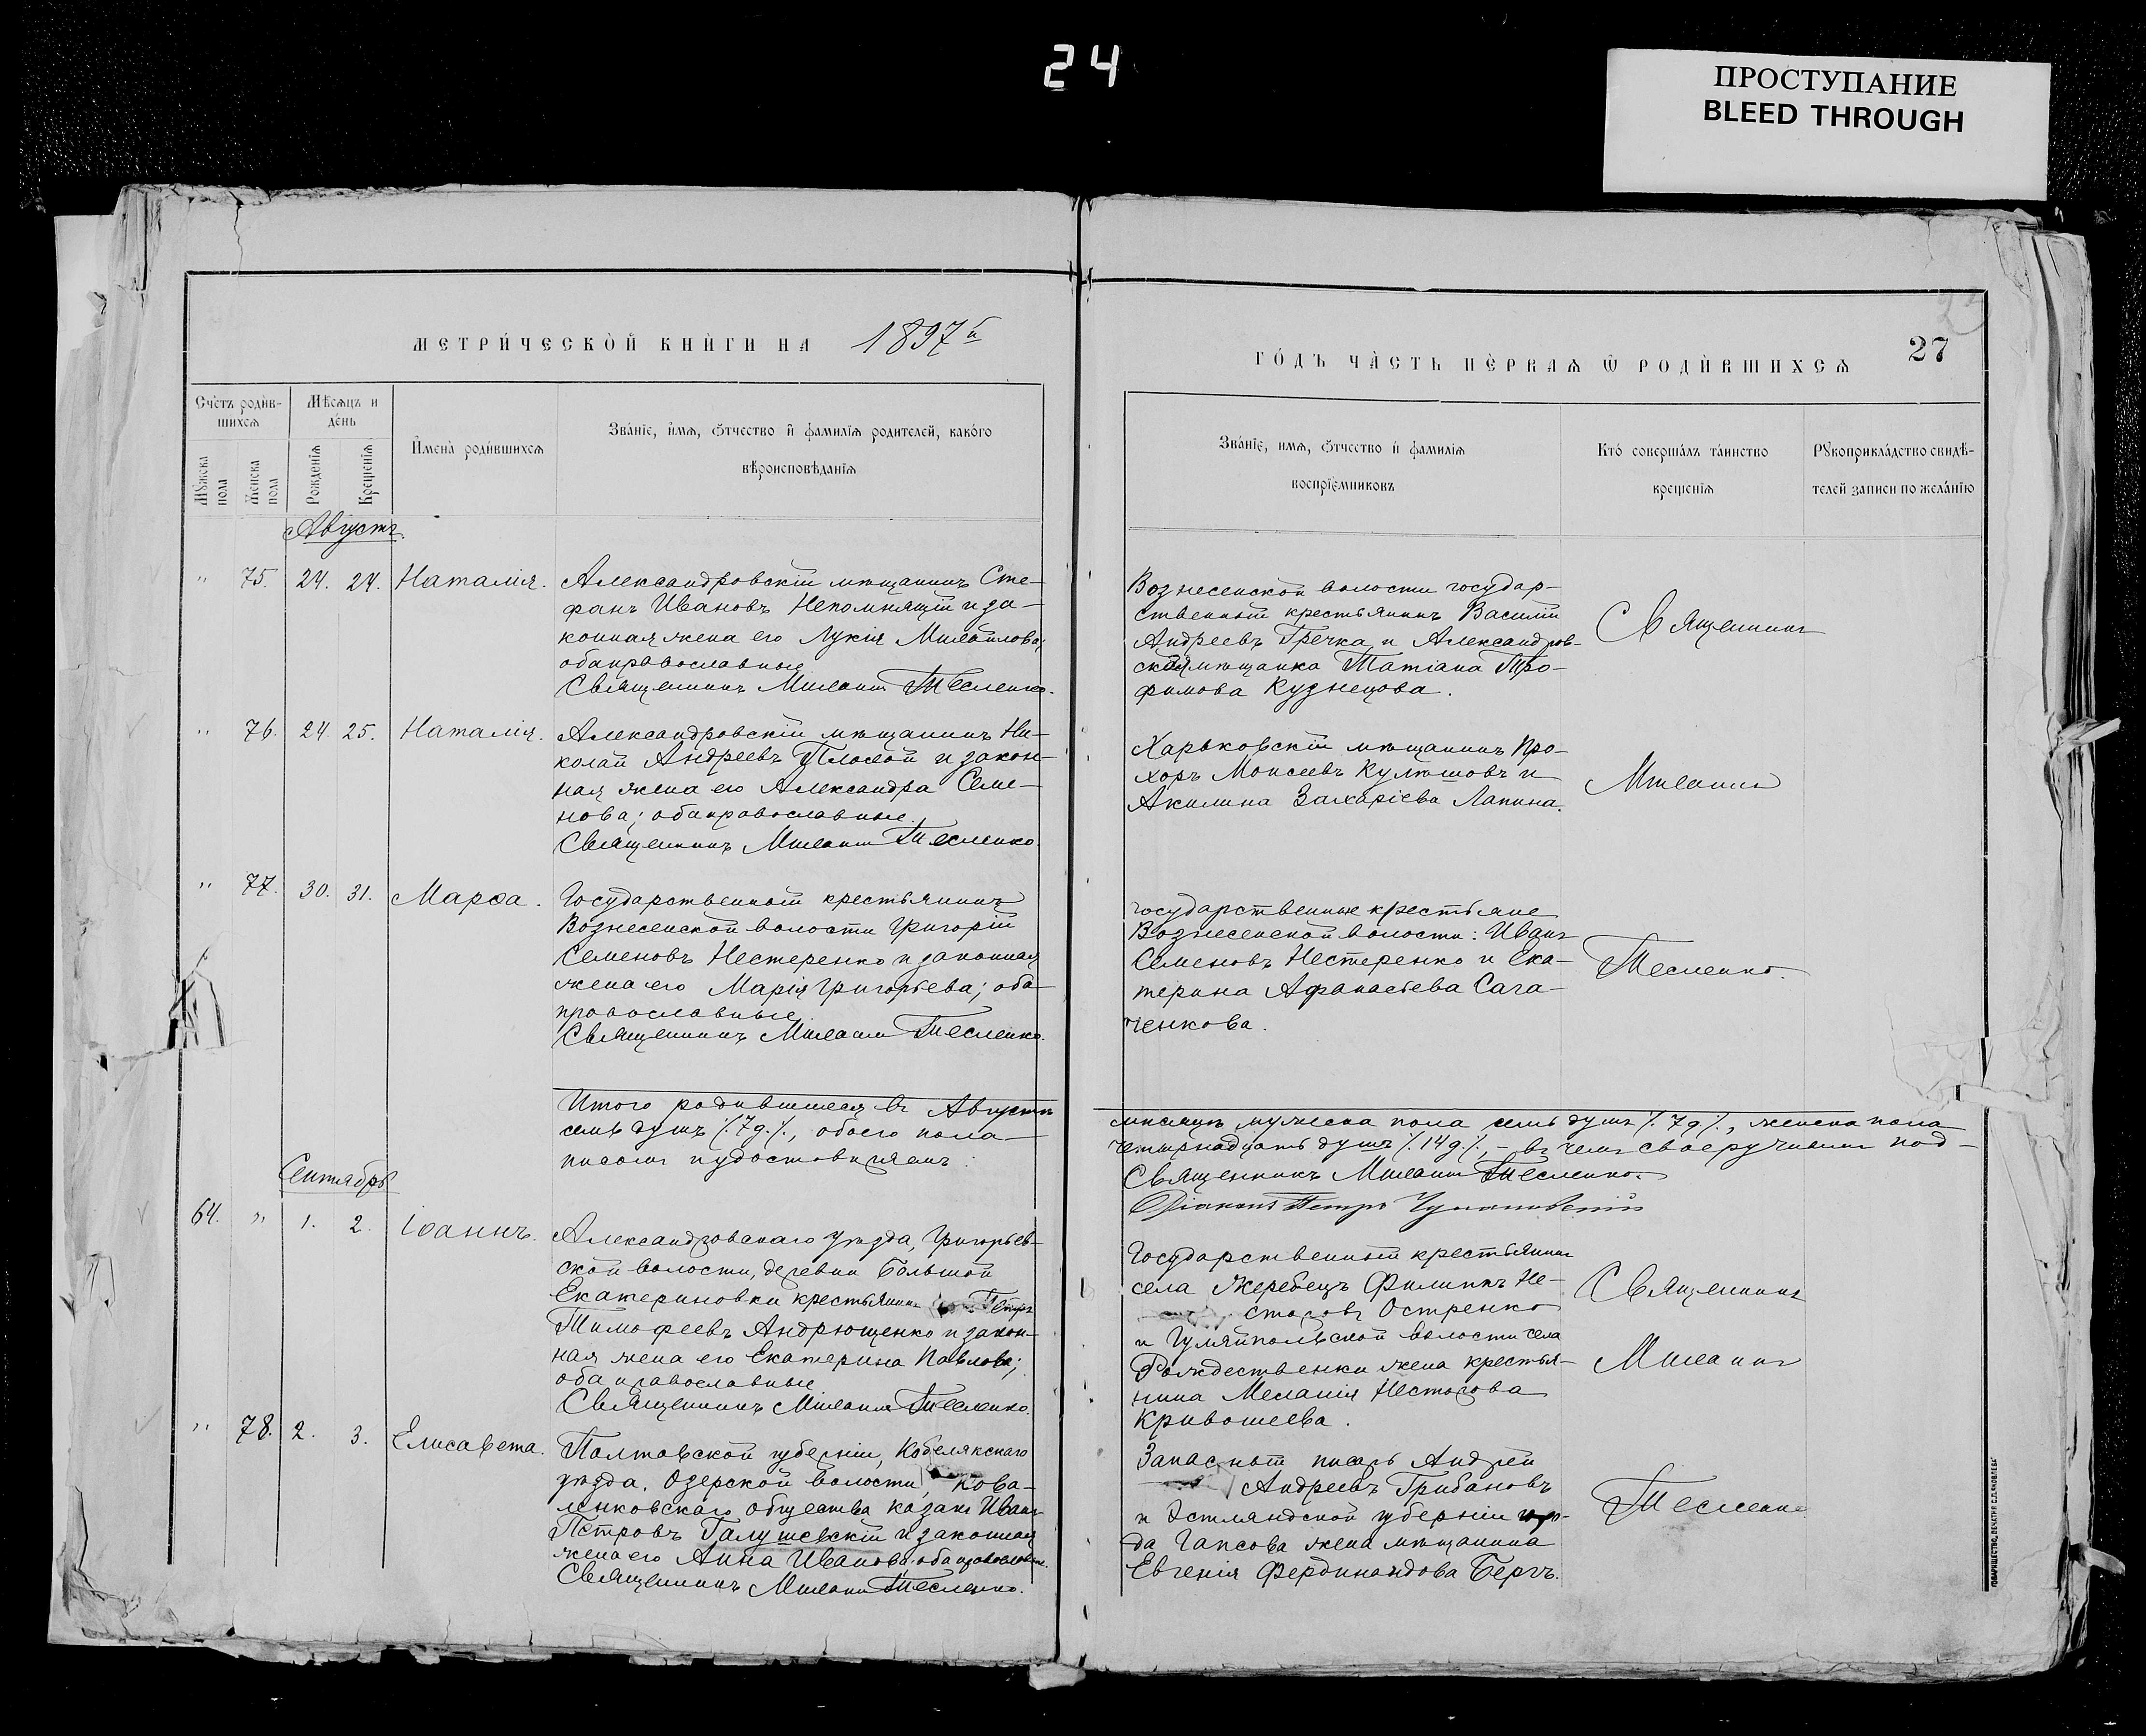 24
ПРОСТУПАНИЕ
BLEED THROUGH
МЕТРИ́ЧЕСКОЙ КНИ́ГИ НА 1897й
ГО́ДЪ ЧА́СТЬ ПЕ́РВАѦ Ѿ РОДИ́ВШИХСѦ
27
Сче́тъ роди́в-
шихсѧ
Мѣ́сѧцъ и
де́нь
Мꙋжеска
пола
Женска
пола
Рожденїѧ
Крещенїѧ
Имена̀ роди́вшихсѧ
Зва́нїе, и́мѧ, ѻтчество и фамилїѧ родителей, како́го
вѣроисповѣданїѧ
Зва́нїе, имѧ, ѻтчество и фамилїѧ
воспрїемниковъ
Кто̀ соверша́лъ та́инство
крещенїѧ
Рꙋкоприкла́дство свидѣ́-
телей записи по жела́нїю
Августъ.
" 75. 24. 24. Наталія.
Александровскій мѣщанинъ Сте-
фанъ Ивановъ Непомнящій и за-
конная жена его Лукія Михайлова;
оба православные
Священникъ Михаилъ Тесленко.
Вознесенской волости государ-
ственный крестьянинъ Василій
Андреевъ Гречка и Александров-
ская мѣщанка Татіана Тро-
фимова Кузнецова.
Священникъ
" 76. 24. 25. Наталія.
Александровскій мѣщанинъ Ни-
колай Андреевъ Плохой и закон-
ная жена его Александра Семе-
нова; оба православные.
Священникъ Михаилъ Тесленко.
Харьковскій мѣщанинъ Про-
хоръ Моисеевъ Кулѣшовъ и
Акилина Захаріева Лапина.
Михаилъ
" 77. 30. 31. Марѳа.
Государственный крестьянинъ
Вознесенской волости Григорій
Семеновъ Нестеренко и законная
жена его Марія Григорьева; оба
православные
Священникъ Михаилъ Тесленко.
Государственные крестьяне
Вознесенской волости: Иванъ
Семеновъ Нестеренко и Ека-
терина Афанасьева Сага-
ченкова.
Тесленко.
Итого родившихся въ Августѣ
семь душъ /.7 д./., обоего пола
писомъ и удостовѣряемъ:
мѣсяцѣ мужеска пола семь душъ /.7 д./., женска пола
четырнадцать душъ /.14 д./., - въ чемъ своеручнымъ под-
Священникъ Михаилъ Тесленко.
Діаконъ Петръ
Сентябрь
64. " 1. 2. Іоаннъ.
Александровскаго уѣзда, Григорьев-
ской волости, деревни Большой
Екатериновки крестьянинъ Петръ
Тимофеевъ Андрющенко и закон-
ная жена его Екатерина Павлова;
оба православные
Священникъ Михаилъ Тесленко.
Государственный крестьянинъ
села Жеребецъ Филиппъ Не-
сторовъ Остренко
и Гуляйпольской волости села
Рождественки жена крестья-
нина Меланія Несторова
Кривошеева.
Священникъ
Михаилъ
" 78. 2. 3. Елисавета.
Полтавской губерніи, Кобелякскаго
уѣзда, Озерской волости, Кова-
ленковскаго общества казакъ Иванъ
Петровъ Галушевскій и законная
жена его Анна Иванова; оба православные.
Священникъ Михаилъ Тесленко.
Запасный писарь Андрей
Андреевъ Грибановъ
и Эстляндской губерніи горо-
да Гапсова жена мѣщанина
Евгенія Фердинандова Бергъ.
Тесленко